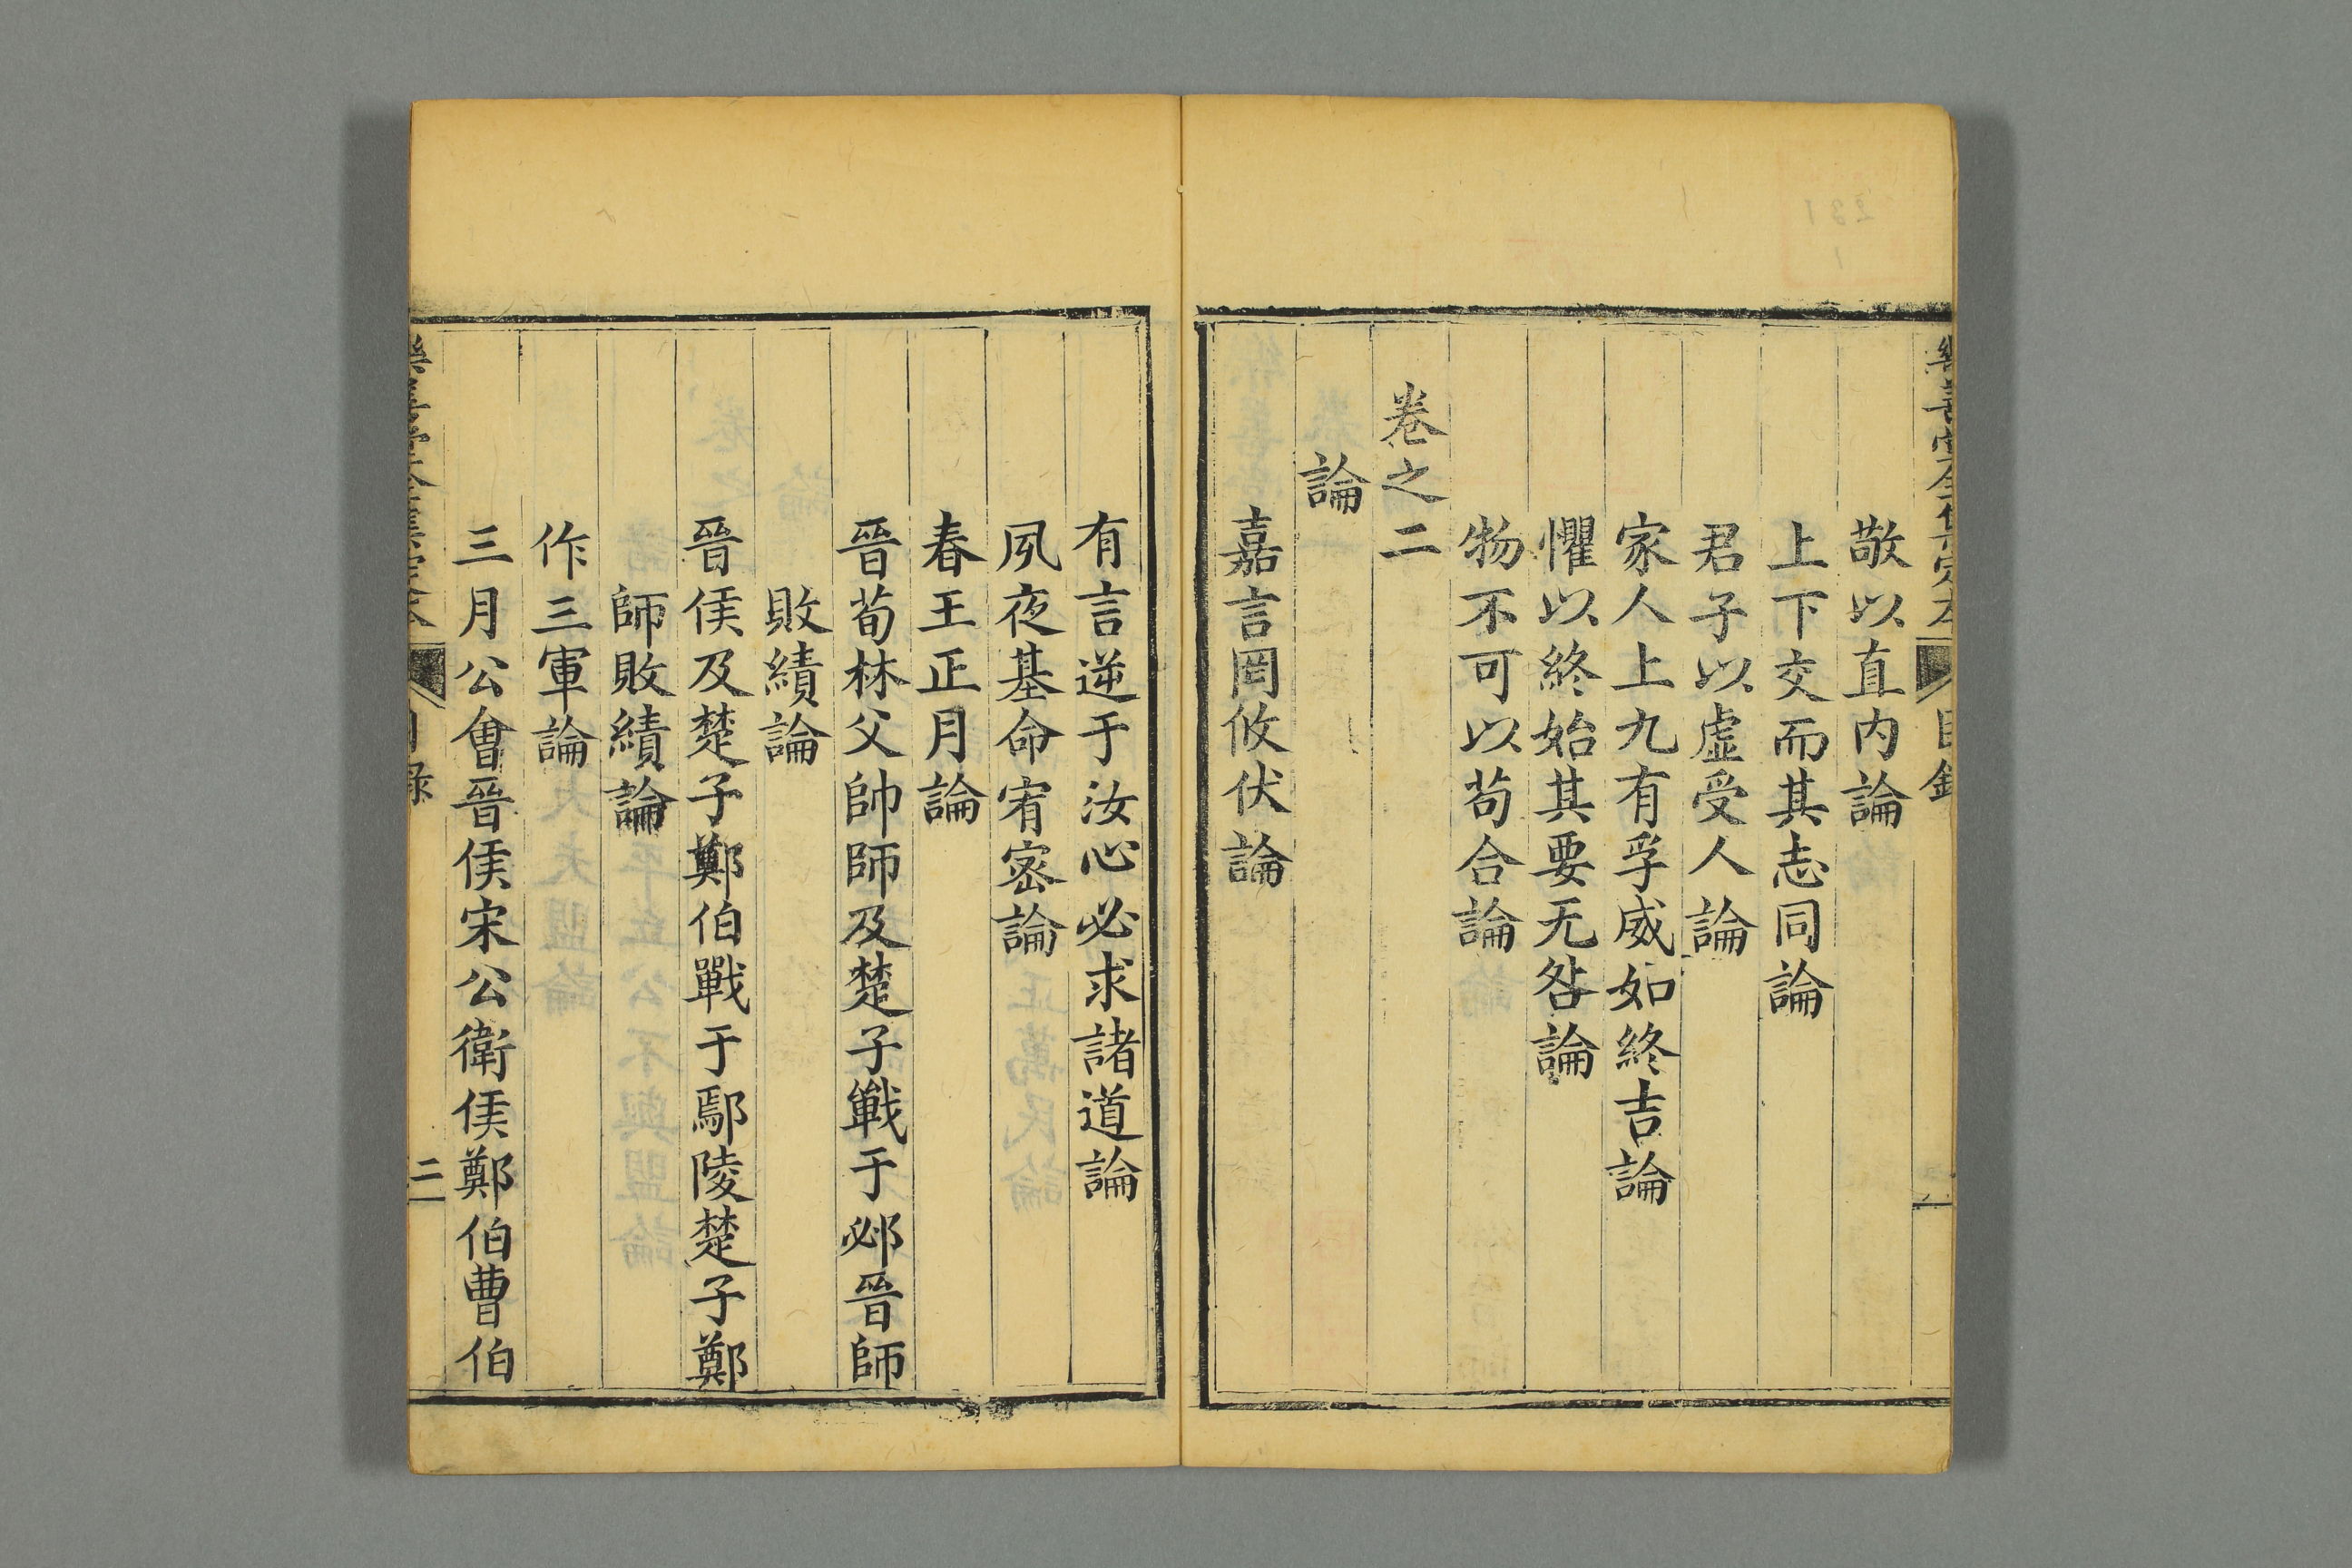 樂善堂全集定本 目錄
敬以直内論
上下交而其志同論
君子以虛受人論
家人上九有孚威如終吉論
懼以終始其要无咎論
物不可以苟合論
卷之二
論
嘉言罔攸伏論
有言逆于汝心必求諸道論
夙夜基命宥密論
春王正月論
晉荀林父帥師及楚子戰于邲晉師
敗績論
晉侯及楚子鄭伯戰于鄢陵楚子鄭
師敗績論
作三軍論
三月公會晉侯宋公衛侯鄭伯曹伯
樂善堂全集定本 目錄 二